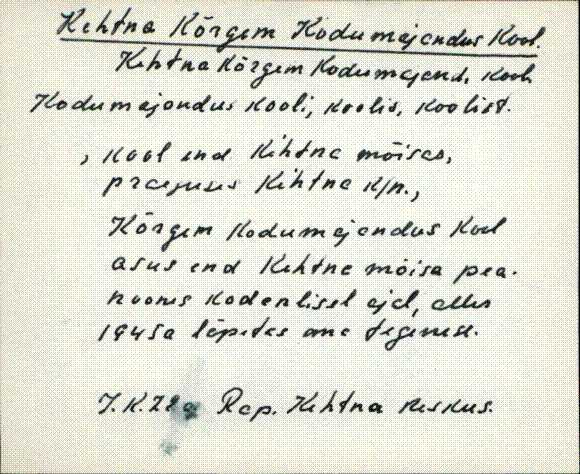 Kehtna Kõrgem Kodumajandus Kool.
Kehtna Kõrgem Kodumajand. Kool
Kodumajandus kooli, koolis, koolist.
, Kool end Kehtna mõisas,
praeguses Kehtna k/n.,
Kõrgem Kodumajandus Kool
asus end Kehtna mõisa pea-
hoones kodanlisel ajal, alles
1945a lõpetas oma tegevuse.
Rap. Kehtna keskus.